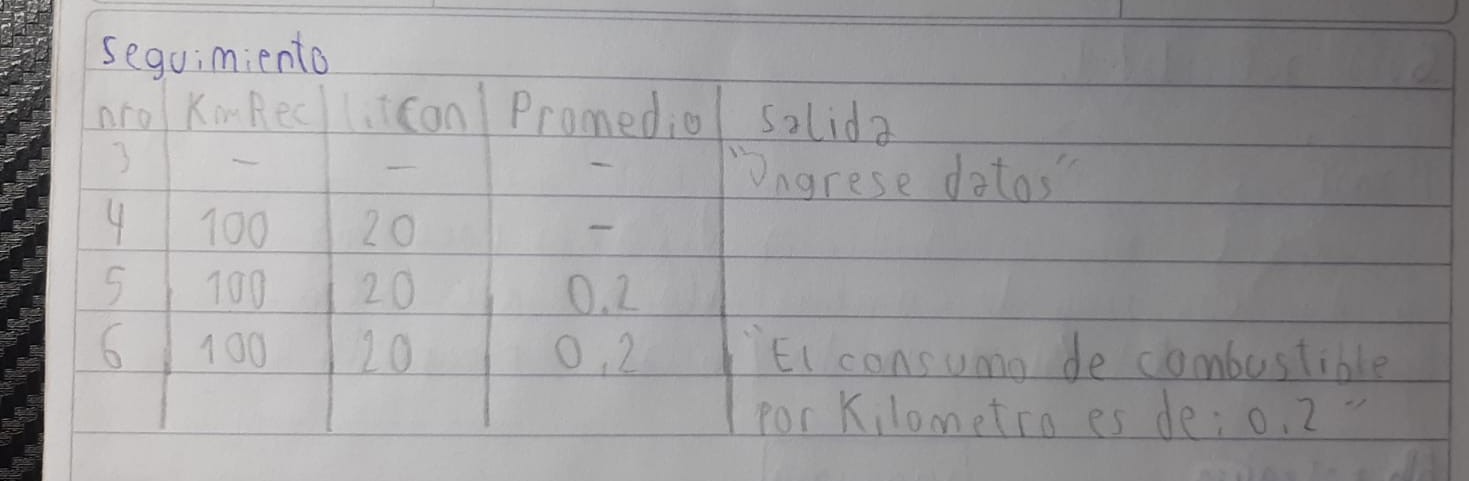 seguimiento
nro KmRec LitCon Promedio Salida
3 - - - "Ingrese datos"
4 100 20 -
5 100 20 0.2
6 100 20 0.2 "El consumo de combustible
por Kilometro es de: 0.2"